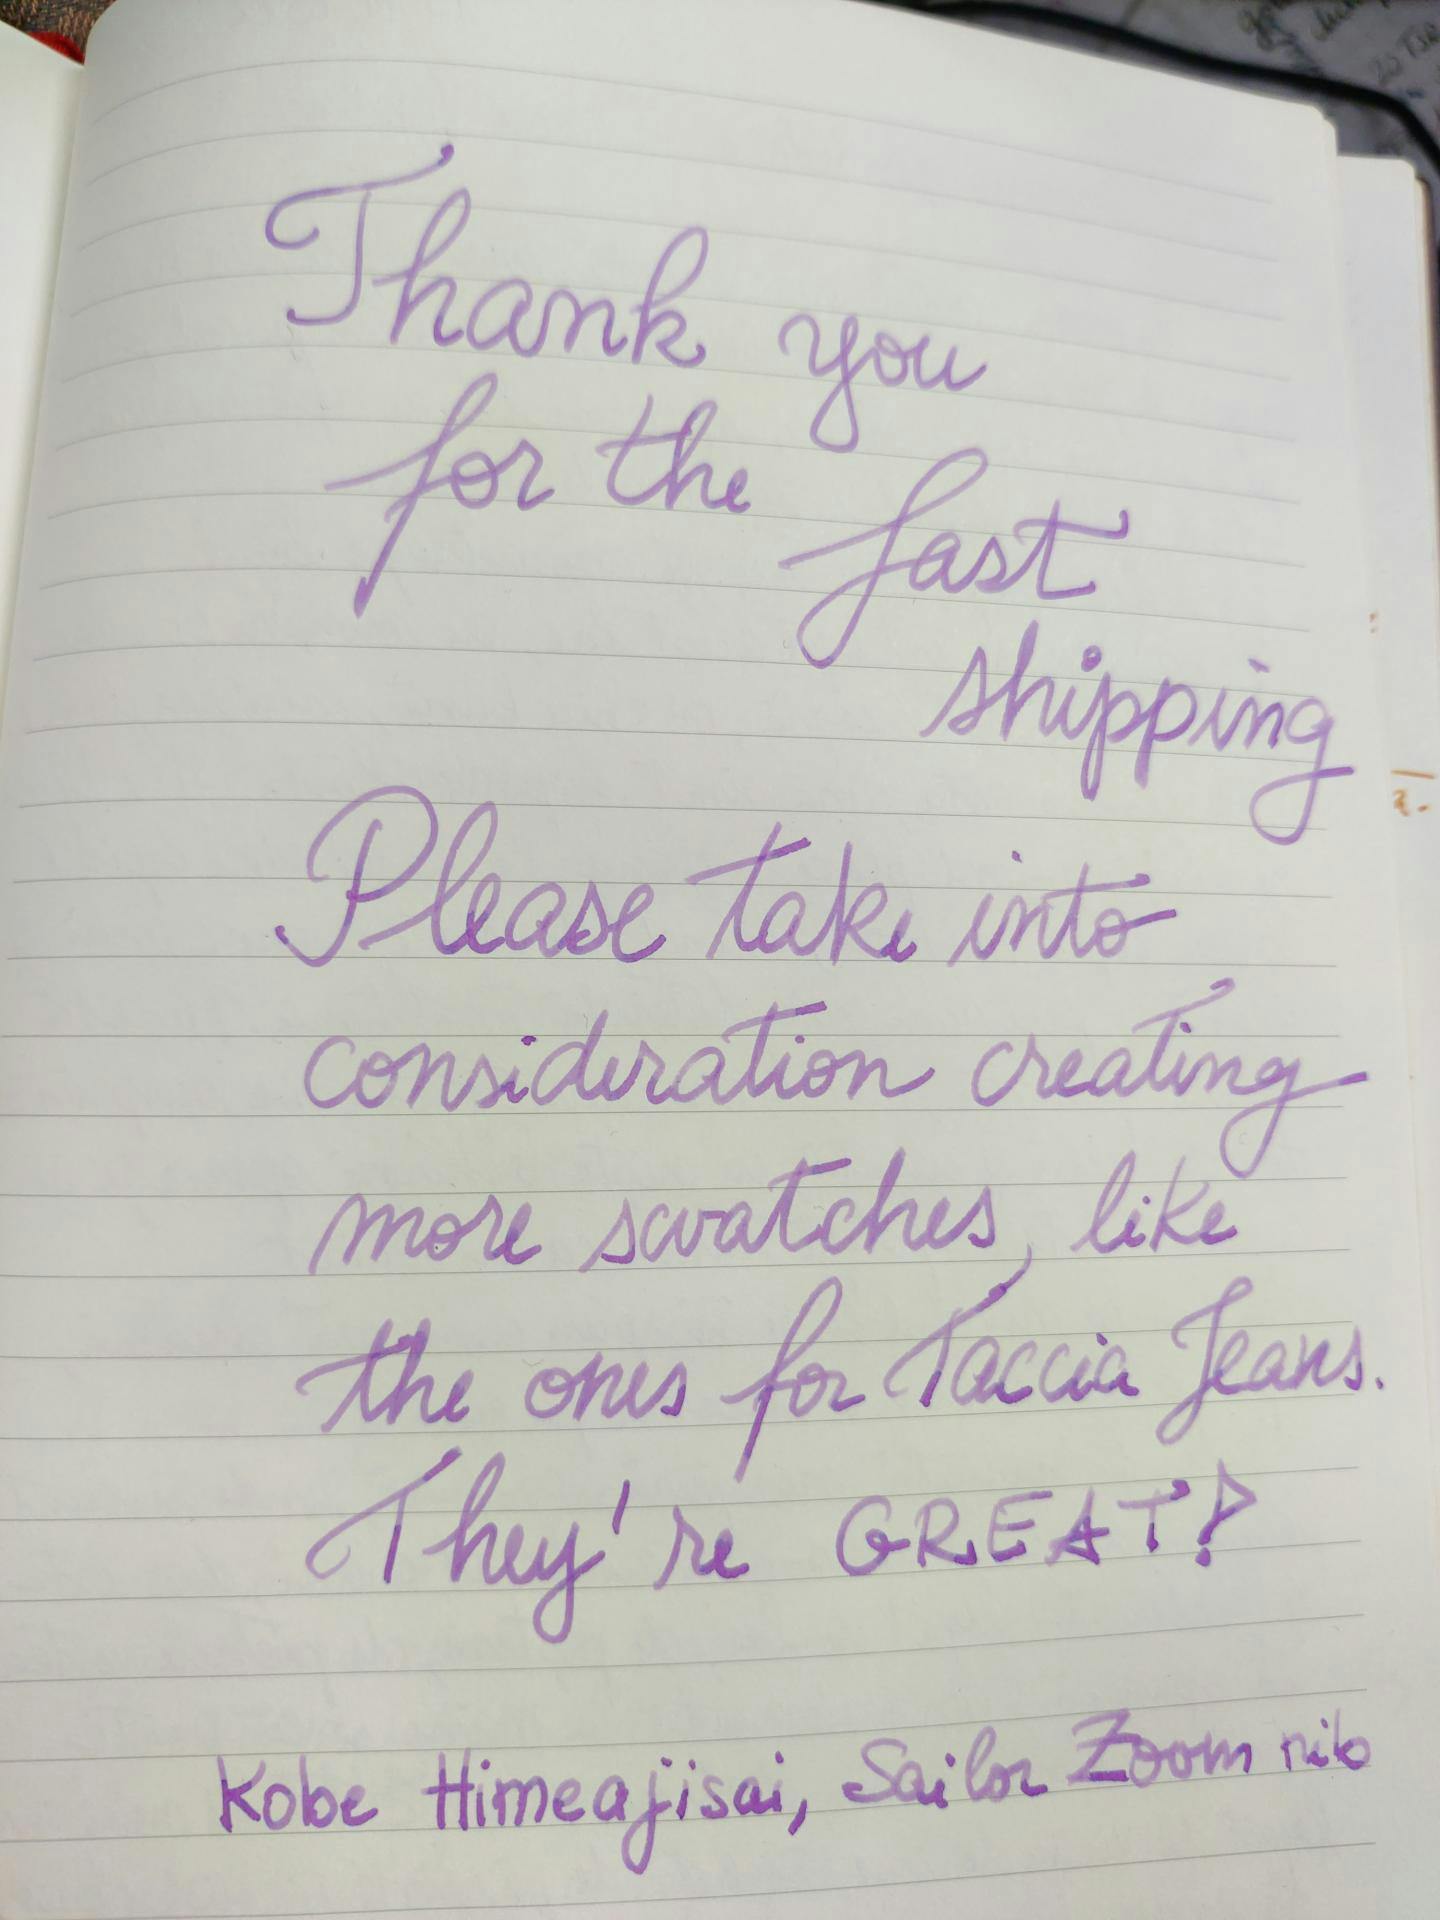 Thank you
for the fast
shipping
Please take into
consideration creating
more swatches, like
the ones for Taccia Jeans.
They're GREAT!
Kobe Himeajisai, Sailor Zoom nib